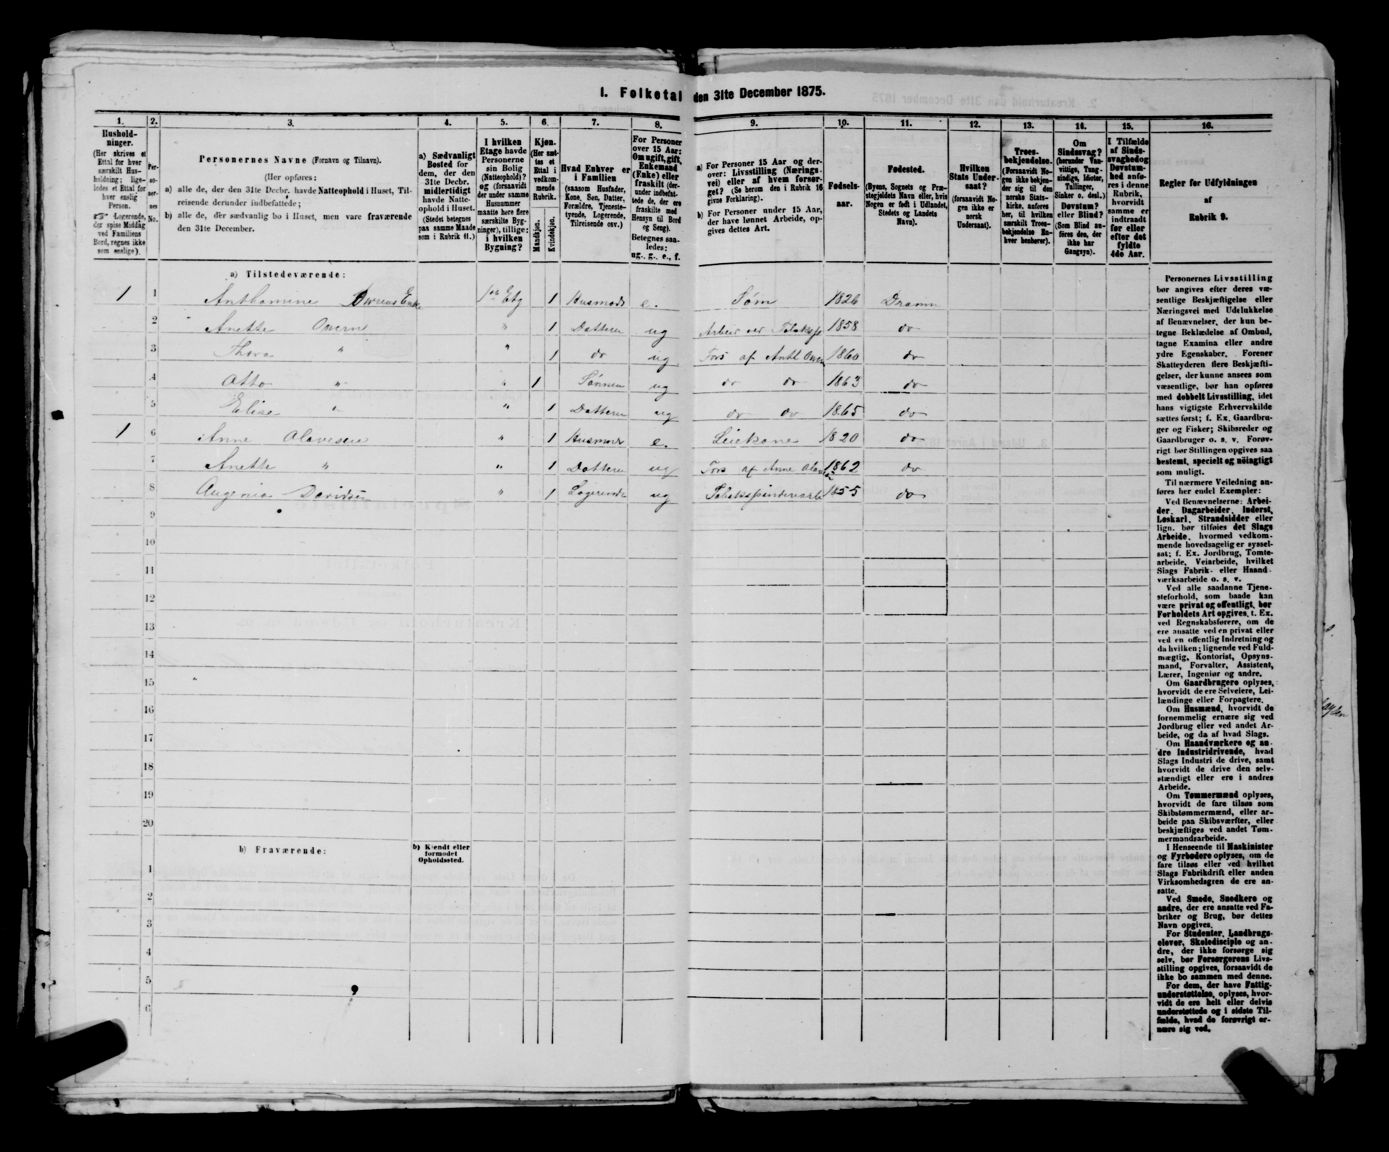 I. Folketal den 31te December 1875.
1.
2.
3.
4.
5.
6.
7.
8.
9.
10.
11.
12.
13.
14.
15.
16.
Hushold-
ninger.
(Her skrives et
Ettal for hver
særskilt Hus-
holdning; lige-
ledes et Ettal for
hver enslig
Person.
Logerende,
der spise Middag
ved Familiens
Bord, regnes ikke
som enslige).
Per-
so-
ner-
nes
No.
Personernes Navne (Fornavn og Tilnavn).
(Her opføres:
a) alle de, der den 31te Decbr. havde Natteophold i Huset, Til-
reisende derunder indbefattede;
b) alle de, der sædvanlig bo i Huset, men vare fraværende
den 31te December.
a) Sædvanligt
Bosted for
dem, der den
31te Decbr.
midlertidigt
havde Natte-
ophold i Huset.
(Stedet betegnes
paa samme Maade
som i Rubrik 11.)
I hvilken
Etage havde
Personerne
sin Bolig
(Natteophold)?
og (forsaavidt
der under samme
Husnummer
maatte høre flere
særskilte Byg-
ninger), tillige:
i hvilken
Bygning?
Kjøn.
(Her sæt-
tes et
Ettal i
vedkom-
mende
Rubrik.
Mandkjøn.
Kvindekjøn.
Hvad Enhver er
i Familien
(saasom Husfader,
Kone, Søn, Datter,
Forældre, Tjeneste-
tyende, Logerende,
Tilreisende osv.)
For Personer
over 15 Aar:
Om ugift, gift,
Enkemand
(Enke) eller
fraskilt (der-
under indbefat-
tede de, der ere
fraskilte med
Hensyn til Bord
og Seng).
Betegnes saa-
ledes:
ug., g., e., f.
a) For Personer 15 Aar og der-
over: Livsstilling (Nærings-
vei) eller af hvem forsør-
get? (Se herom den i Rubrik 16
givne Forklaring).
b) For Personer under 15 Aar,
der have lønnet Arbeide, op-
gives dettes Art.
Fødsels-
aar.
Fødested.
(Byens, Sognets og Præ-
stegjeldets Navn eller, hvis
Nogen er født i Udlandet,
Stedets og Landets
Navn).
Hvilken
Stats Under-
saat?
(forsaavidt No-
gen ikke er
norsk
Undersaat).
Troes-
bekjendelse.
(Forsaavidt No-
gen ikke bekjen-
der sig til den
norske Stats-
kirke, anføres
her, til hvilken
særskilt Troes-
bekjendelse En-
hver henhører).
Om
Sindssvag?
(herunder Van-
vittige, Tung-
sindige, Idioter,
Tullinger,
Sinker o. desl.),
Døvstum?
eller Blind?
(Som Blind an-
føres den, der
ikke har
Gangsyn).
I Tilfælde
af Sinds-
svaghed og
Døvstum-
hed anfø-
res i denne
Rubrik,
hvorvidt
samme er
indtraadt
før eller
efter det
fyldte
4de Aar.
Regler for Udfyldningen
af
Rubrik 9.
a) Tilstedeværende:
1 1 Anthomine Enke 1ste Etg 1 Husmoder e. Søm 1826 Dramn
2 Anette " 1 Datteren ug 1858 do
3 Thora " " 1 do ug Fors af 1860 do
4 Otto " " 1 Sønnen ug do do 1863 do
5 Elise " " 1 Datteren ug do do 1865 do
1 6 Anne Olavesen " 1 Husmoder e. Leiekone 1820 do
7 Anette " " 1 Datteren ug Fors af Anne 1862 do
8 Augenia Davidsen " 1 Logerende ug 1855 do
9
10
11
12
13
14
15
16
17
18
19
20
b) Fraværende:
b) Kjendt eller
formodet
Opholdssted.
1
2
3
4
5
6
Personernes Livsstilling
bør angives efter deres væ-
sentlige Beskjæftigelse eller
Næringsvei med Udelukkelse
af Benævnelser, der kun be-
tegne Beklædelse af Ombud,
tagne Examina eller andre
ydre Egenskaber. Forener
Skatteyderen flere Beskjæfti-
gelser, der kunne ansees som
væsentlige, bør han opføres
med dobbelt Livsstilling, idet
hans vigtigste Erhvervskilde
sættes først; f. Ex. Gaardbru-
ger og Fisker; Skibsreder og
Gaardbruger o. s. v. Forøv-
rigt bør Stillingen opgives saa
bestemt, specielt og nøiagtigt
som muligt.
Til nærmere Veiledning an-
føres her endel Exempler:
Ved Benævnelserne: Arbei-
der, Dagarbeider, Inderst,
Løskarl, Strandsidder eller
lign. bør tilføies det Slags
Arbeide, hvormed vedkom-
mende hovedsagelig er syssel-
sat; f. Ex. Jordbrug, Tomte-
arbeide, Veiarbeide, hvilket
Slags Fabrik- eller Haand-
værksarbeide o. s. v.
Ved alle saadanne Tjene-
steforhold, som baade kan
være privat og offentligt, bør
Forholdets Art opgives, f. Ex.
ved Regnskabsførere, om de
ere ansatte ved en privat eller
ved en offentlig Indretning og
da hvilken; lignende ved Fuld-
mægtig, Kontorist, Opsyns-
mand, Forvalter, Assistent,
Lærer, Ingeniør og andre.
Om Gaardbrugere oplyses,
hvorvidt de ere Selveiere, Lei-
lændinge eller Forpagtere.
Om Husmænd, hvorvidt de
fornemmelig ernære sig ved
Jordbrug eller ved andet Ar-
beide, og da af hvad Slags.
Om Haandværkere og an-
dre Industridrivende, hvad
Slags Industri de drive, samt
hvorvidt de drive den selv-
stændigt eller ere i andres
Arbeide.
Om Tømmermænd oplyses,
hvorvidt de fare tilsøs som
Skibstømmermænd, eller ar-
beide paa Skibsværfter, eller
beskjæftiges ved andet Tøm-
mermandsarbeide.
I Henseende til Maskinister
og Fyrbødere oplyses, om de
fare tilsøs eller ved hvilket
Slags Fabrikdrift eller anden
Virksomhedsgren de ere an-
satte.
Ved Smede, Snedkere og
andre, der ere ansatte ved Fa-
briker og Brug, bør dettes
Navn opgives.
For Studenter, Landbrugs-
elever, Skoledisciple og an-
dre, der ikke forsørge sig
selv, bør Forsørgerens Livs-
stilling opgives, forsaavidt de
ikke bo sammen med denne.
For dem, der have Fattig-
understøttelse, oplyses, hvor-
vidt de ere helt eller delvis
understøttede og i sidste Til-
fælde, hvad de forøvrigt er-
nære sig ved.